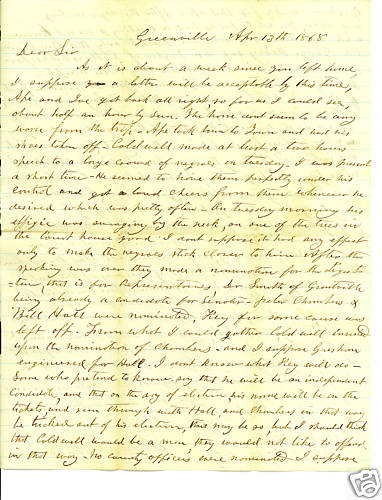 Greenville Apr 13th 1868
Dear Sir
As it is about a week since you left home,
I suppose a letter will be acceptable by this time,
Abe and I've got back all right, so far as I could see,
about half an hour by sun. The horse dont seem to be any
worse from the trip. Abe took him to Town and had his
shoes taken off - Caldwell made at least a two hours
speech to a large crowd of negroes on tuesday. I was present
a short time - He seemed to have them perfectly under his
control and got loud cheers from them whenever he
desired which was pretty often - On tuesday morning his
effigie was swinging by the neck, on one of the trees in
the court house yard I dont suppose it had any effect
only to make the negroes stick closer to him. After the
speaking was over they made a nomination for the legisla-
-ture, (that is for Representatives, Dr Smith of
being already a candidate for Senator - Chambers &
Bill Hall were nominated, Key for some cause was
left off. From what I could gather Caldwell insisted
upon the nomination of Chambers - and I suppose
engineered for Hall. I dont know what Key will do -
Some who pretend to know, say that he will be an independent
Candidate, and that on the day of election his name will be on the
tickets, and run through with Hall, and Chambers in that way
be tricked out of his election, this may be so, but I should think
that Caldwell would be a man they would not like to offend
in that way - No county officers were nominated I suppose
eBay